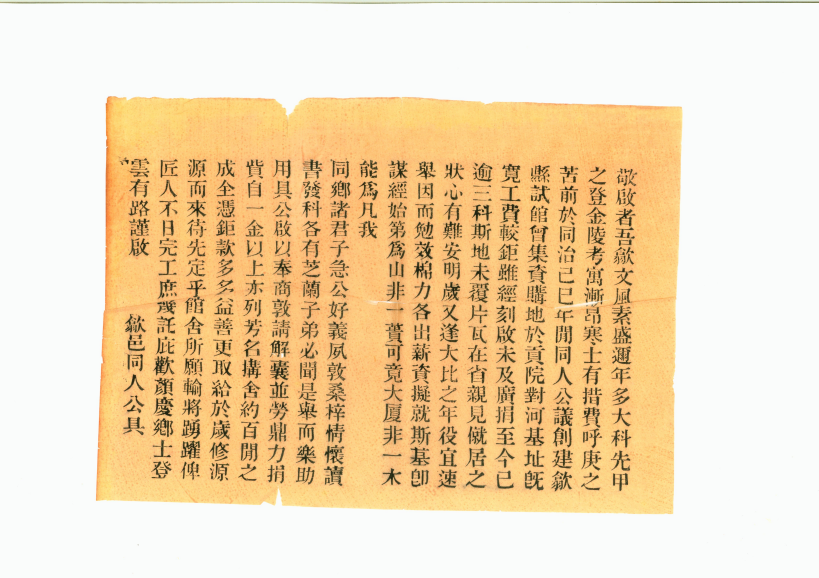 敬啟者吾歙文風素盛邇年多大科先甲
之登金陵考寓漸昂寒士有措費呼庚之
苦前於同治己巳年閒同人公議創建歙
縣試館曾集資購地於貢院對河基址旣
寬工費較鉅雖經刻啟未及廣捐至今已
逾三科斯地未覆片瓦在省親見僦居之
狀心有難安明歲又逢大比之年役宜速
舉因而勉效棉力各出薪資擬就斯基卽
謀經始第爲山非一蕢可竟大厦非一木
能爲凡我
同鄉諸君子急公好義夙敦桑梓情懷讀
書發科各有芝蘭子弟必聞是舉而樂助
用具公啟以奉商敦請解囊並勞鼎力捐
貲自一金以上亦列芳名搆舍約百閒之
成全憑鉅款多多益善更取給於歲修源
源而來待先定乎館舍所願輸將踴躍俾
匠人不日完工庶幾託庇歡顏慶鄉士登
雲有路謹啟
歙邑同人公具